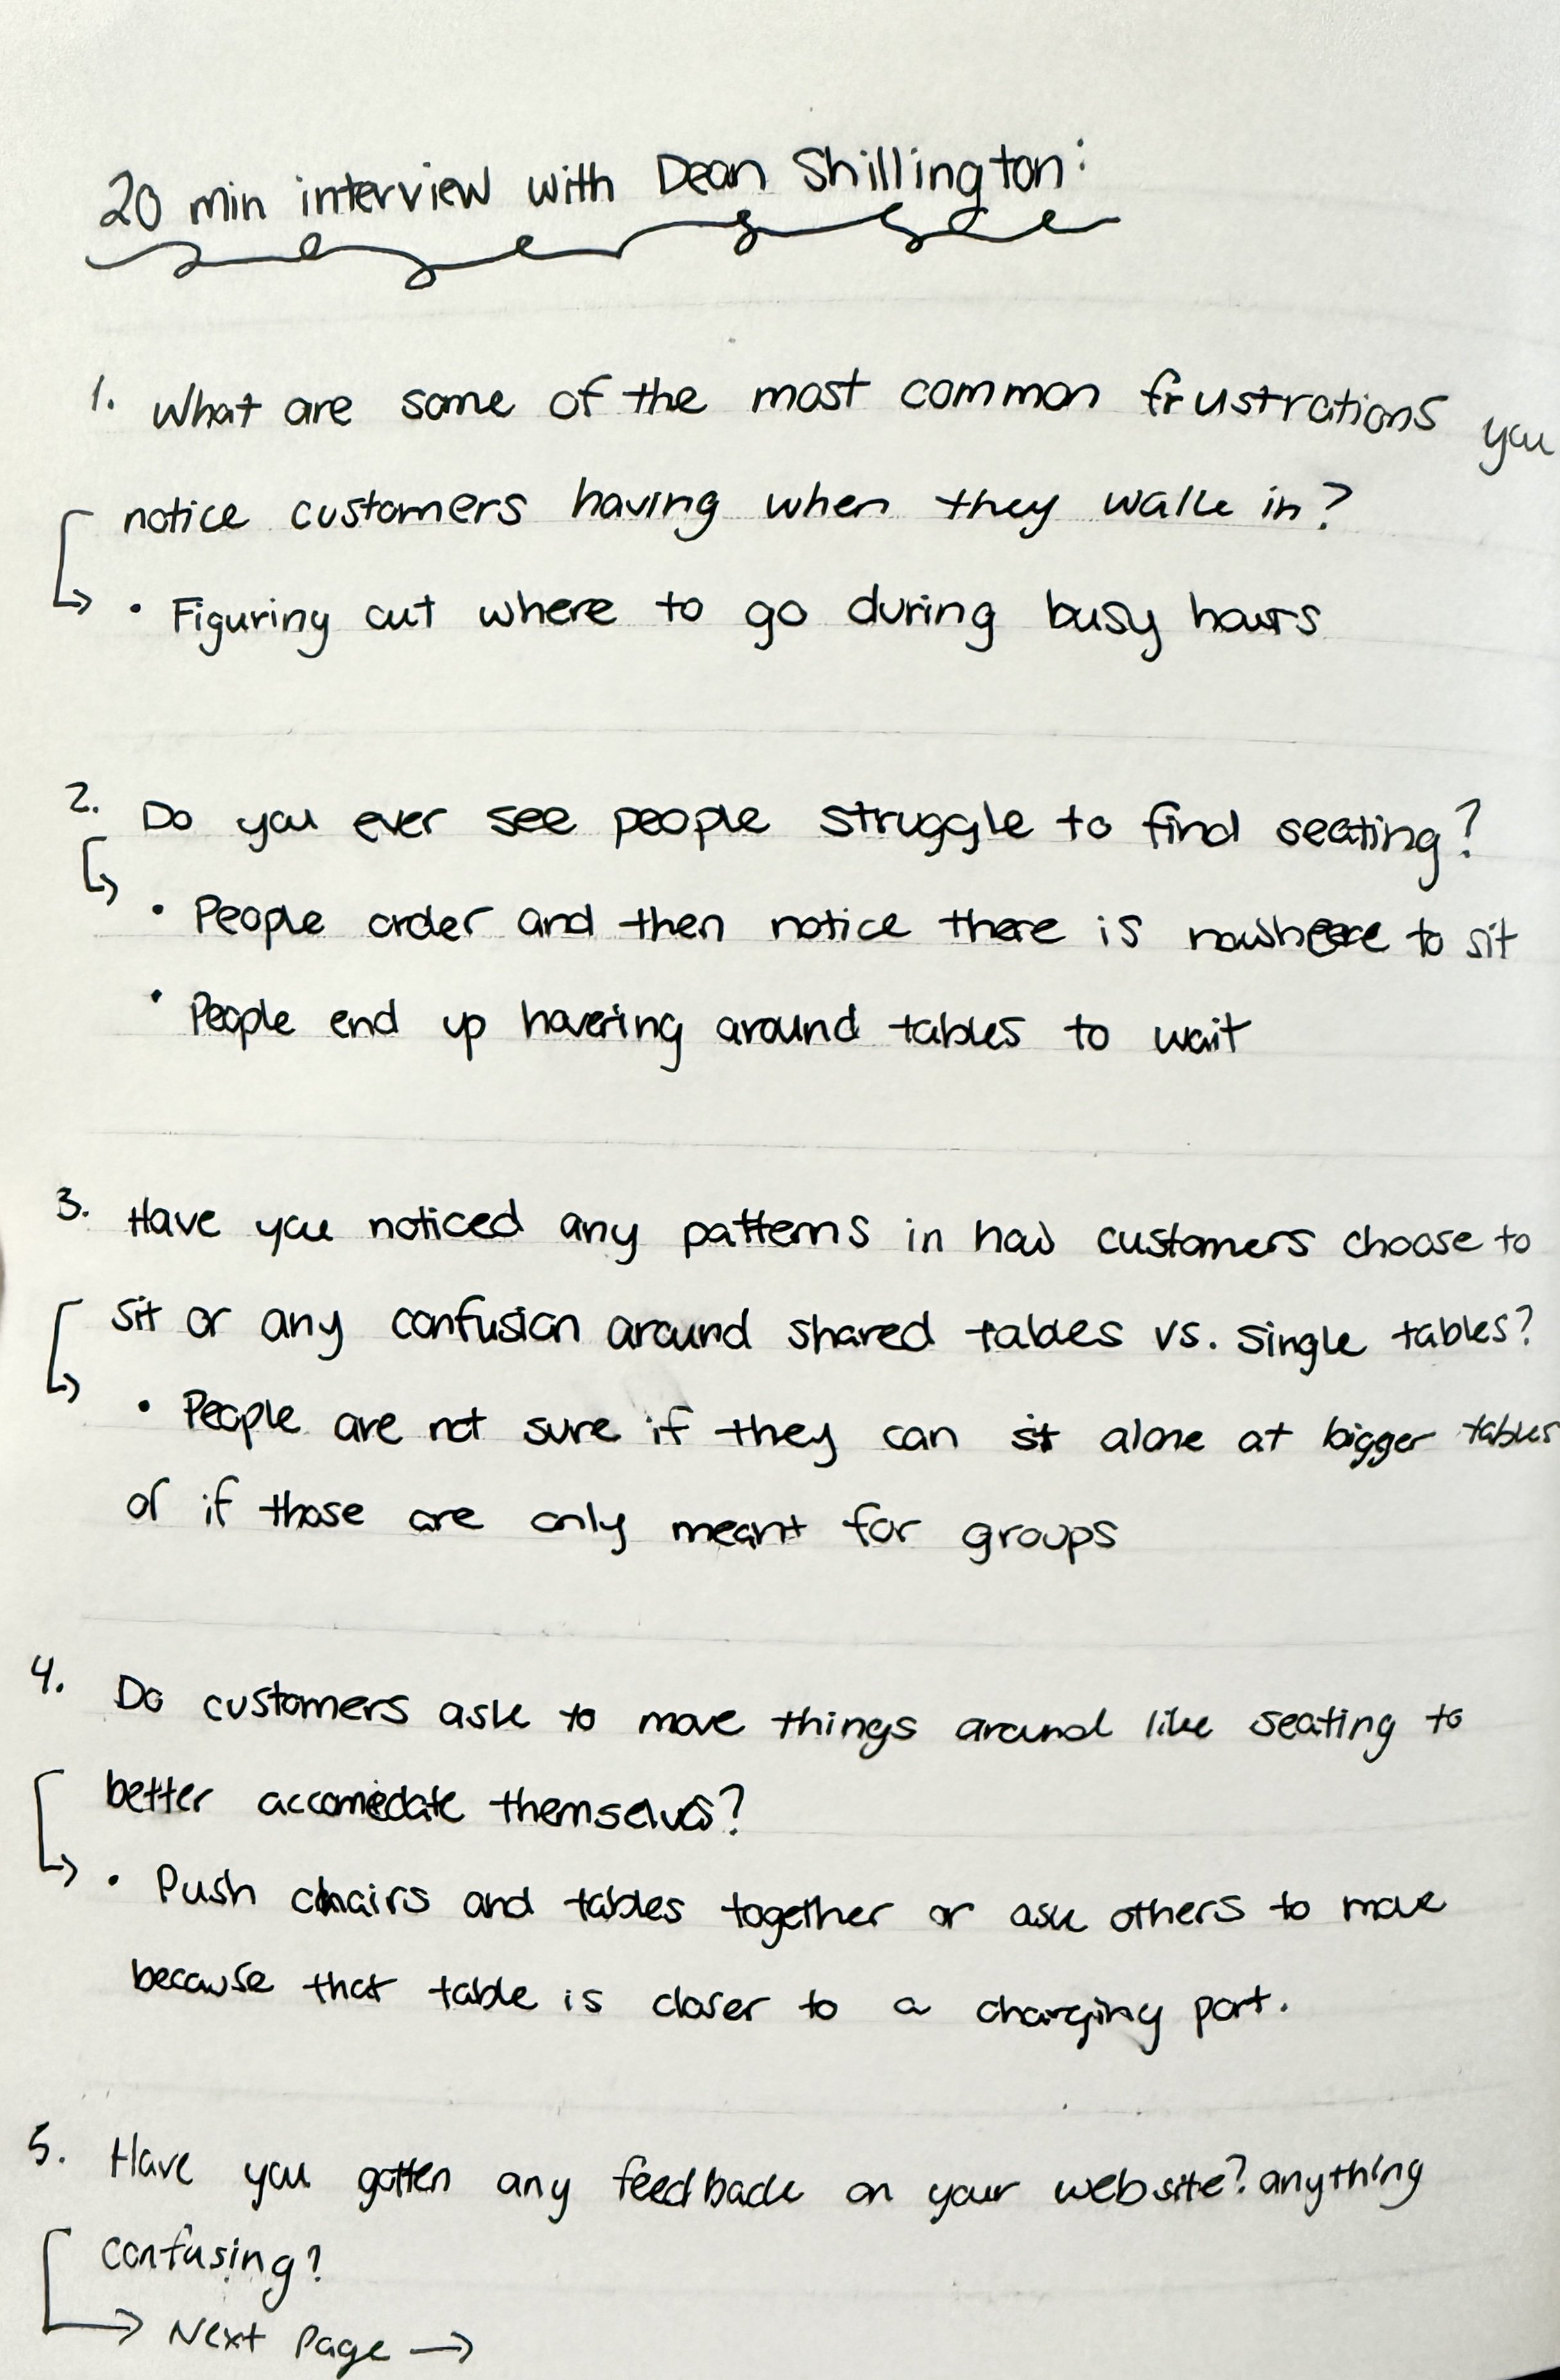 20 min interview with Dean Shillington:
1. What are some of the most common frustrations you
notice customers having when they walk in?
• Figuring out where to go during busy hours
2. Do you ever see people struggle to find seating?
• People order and then notice there is nowhere to sit
• People end up hovering around tables to wait
3. Have you noticed any patterns in how customers choose to
sit or any confusion around shared tables vs. single tables?
• People are not sure if they can sit alone at bigger tables
or if those are only meant for groups
4. Do customers ask to move things around like seating to
better accomedate themselves?
• Push chairs and tables together or ask others to move
because that table is closer to a charging port.
5. Have you gotten any feedback on your website? anything
confusing?
→ Next Page →